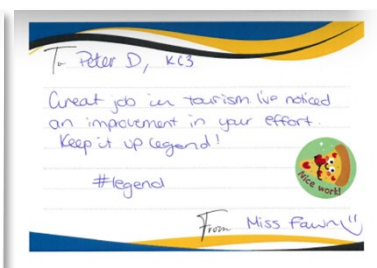 To Peter D, KC3
Great job in tourism I've noticed
an improvement in your effort.
Keep it up legend!
#legend
Nice work!
From Miss Fawn